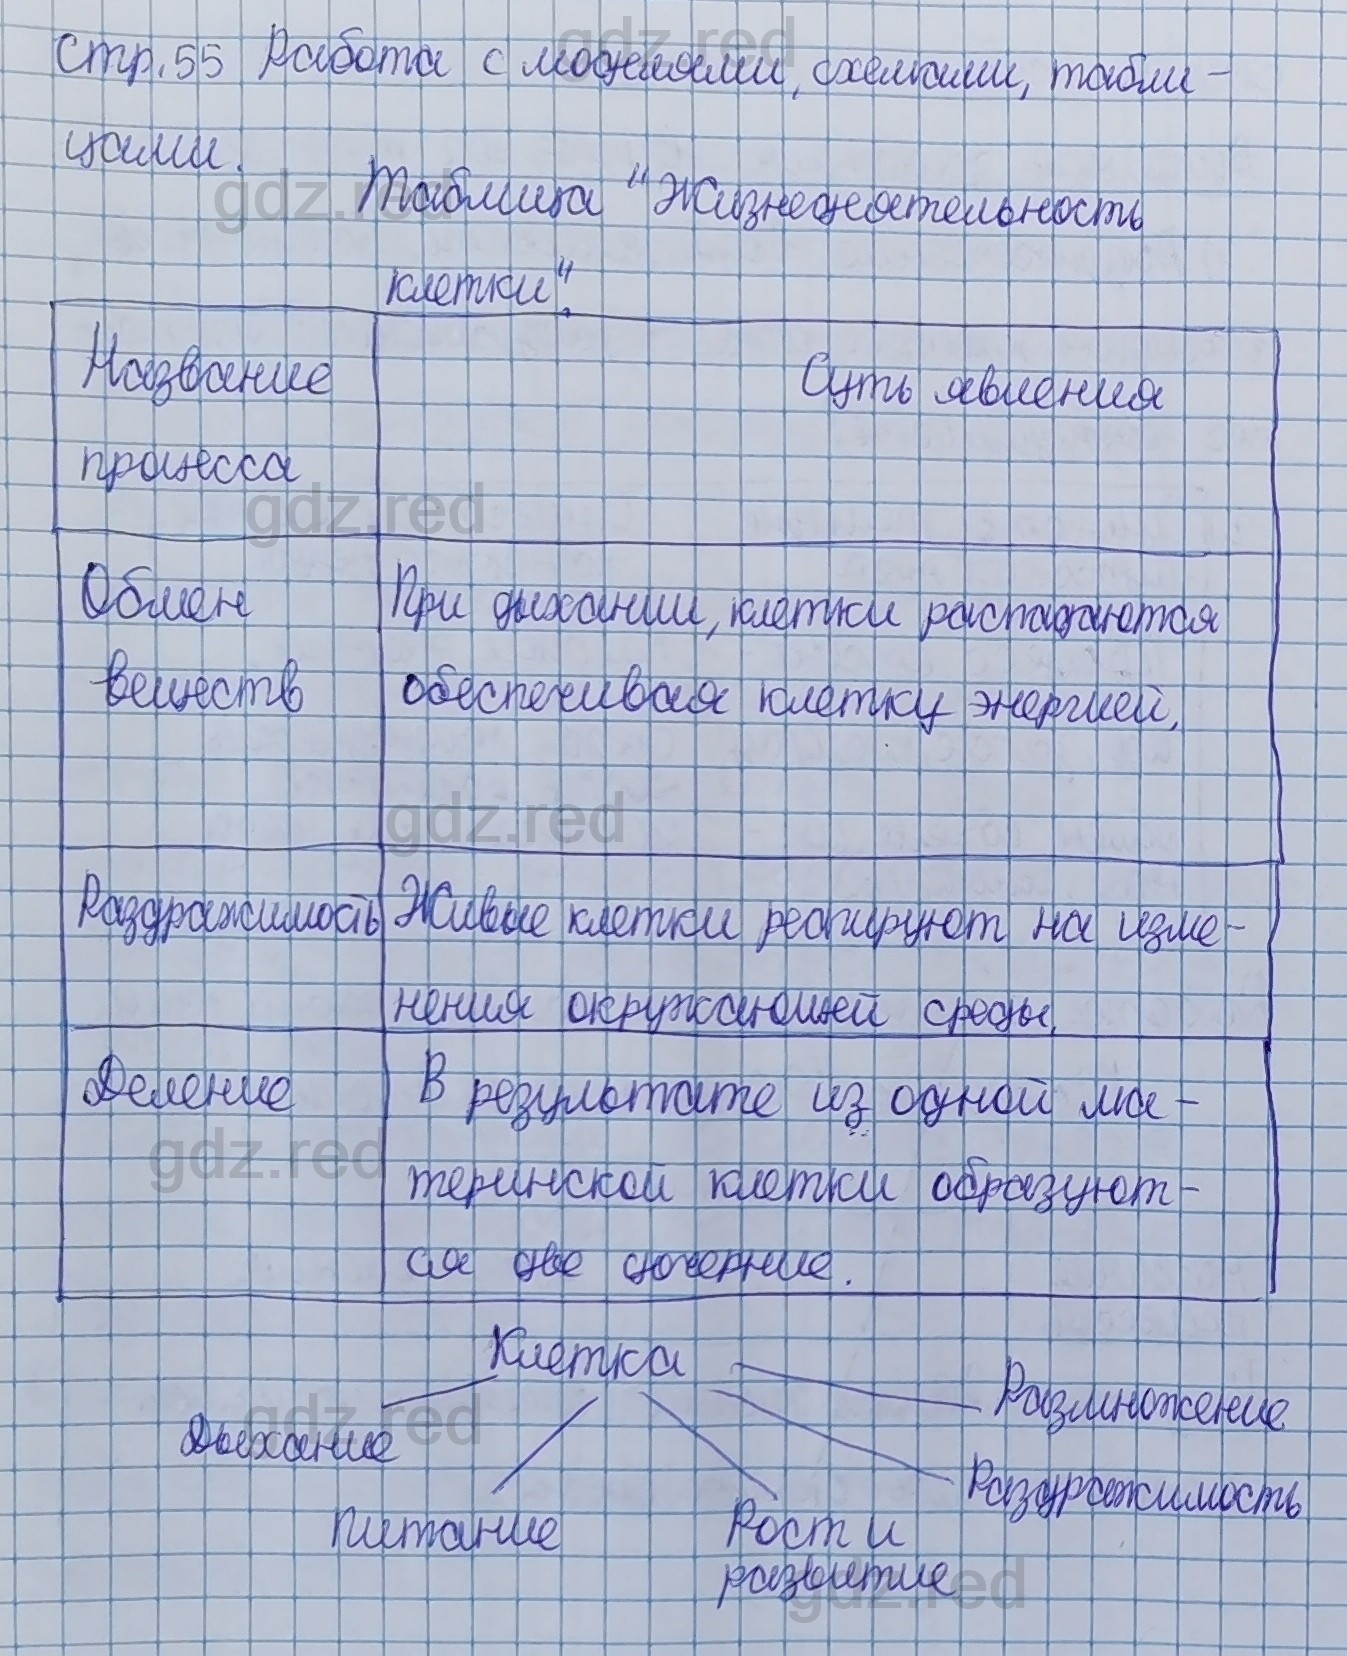 Стр. 55 Работа с моделями, схемами, табли-
цами.
Таблица "Жизнедеятельность
клетки".
Название
процесса
Суть явления
Обмен
веществ
При дыхании, клетки распадаются
обеспечивая клетку энергией,
Раздражимость
Живые клетки реагируют на изме-
нения окружающей среды,
Деление
В результате из одной ма-
теринской клетки образуют-
ся две дочерние.
Клетка
Размножение
Дыхание
Раздражимость
Питание
Рост и
развитие
gdz.red
gdz.red
gdz.red
gdz.red
gdz.red
gdz.red
gdz.red